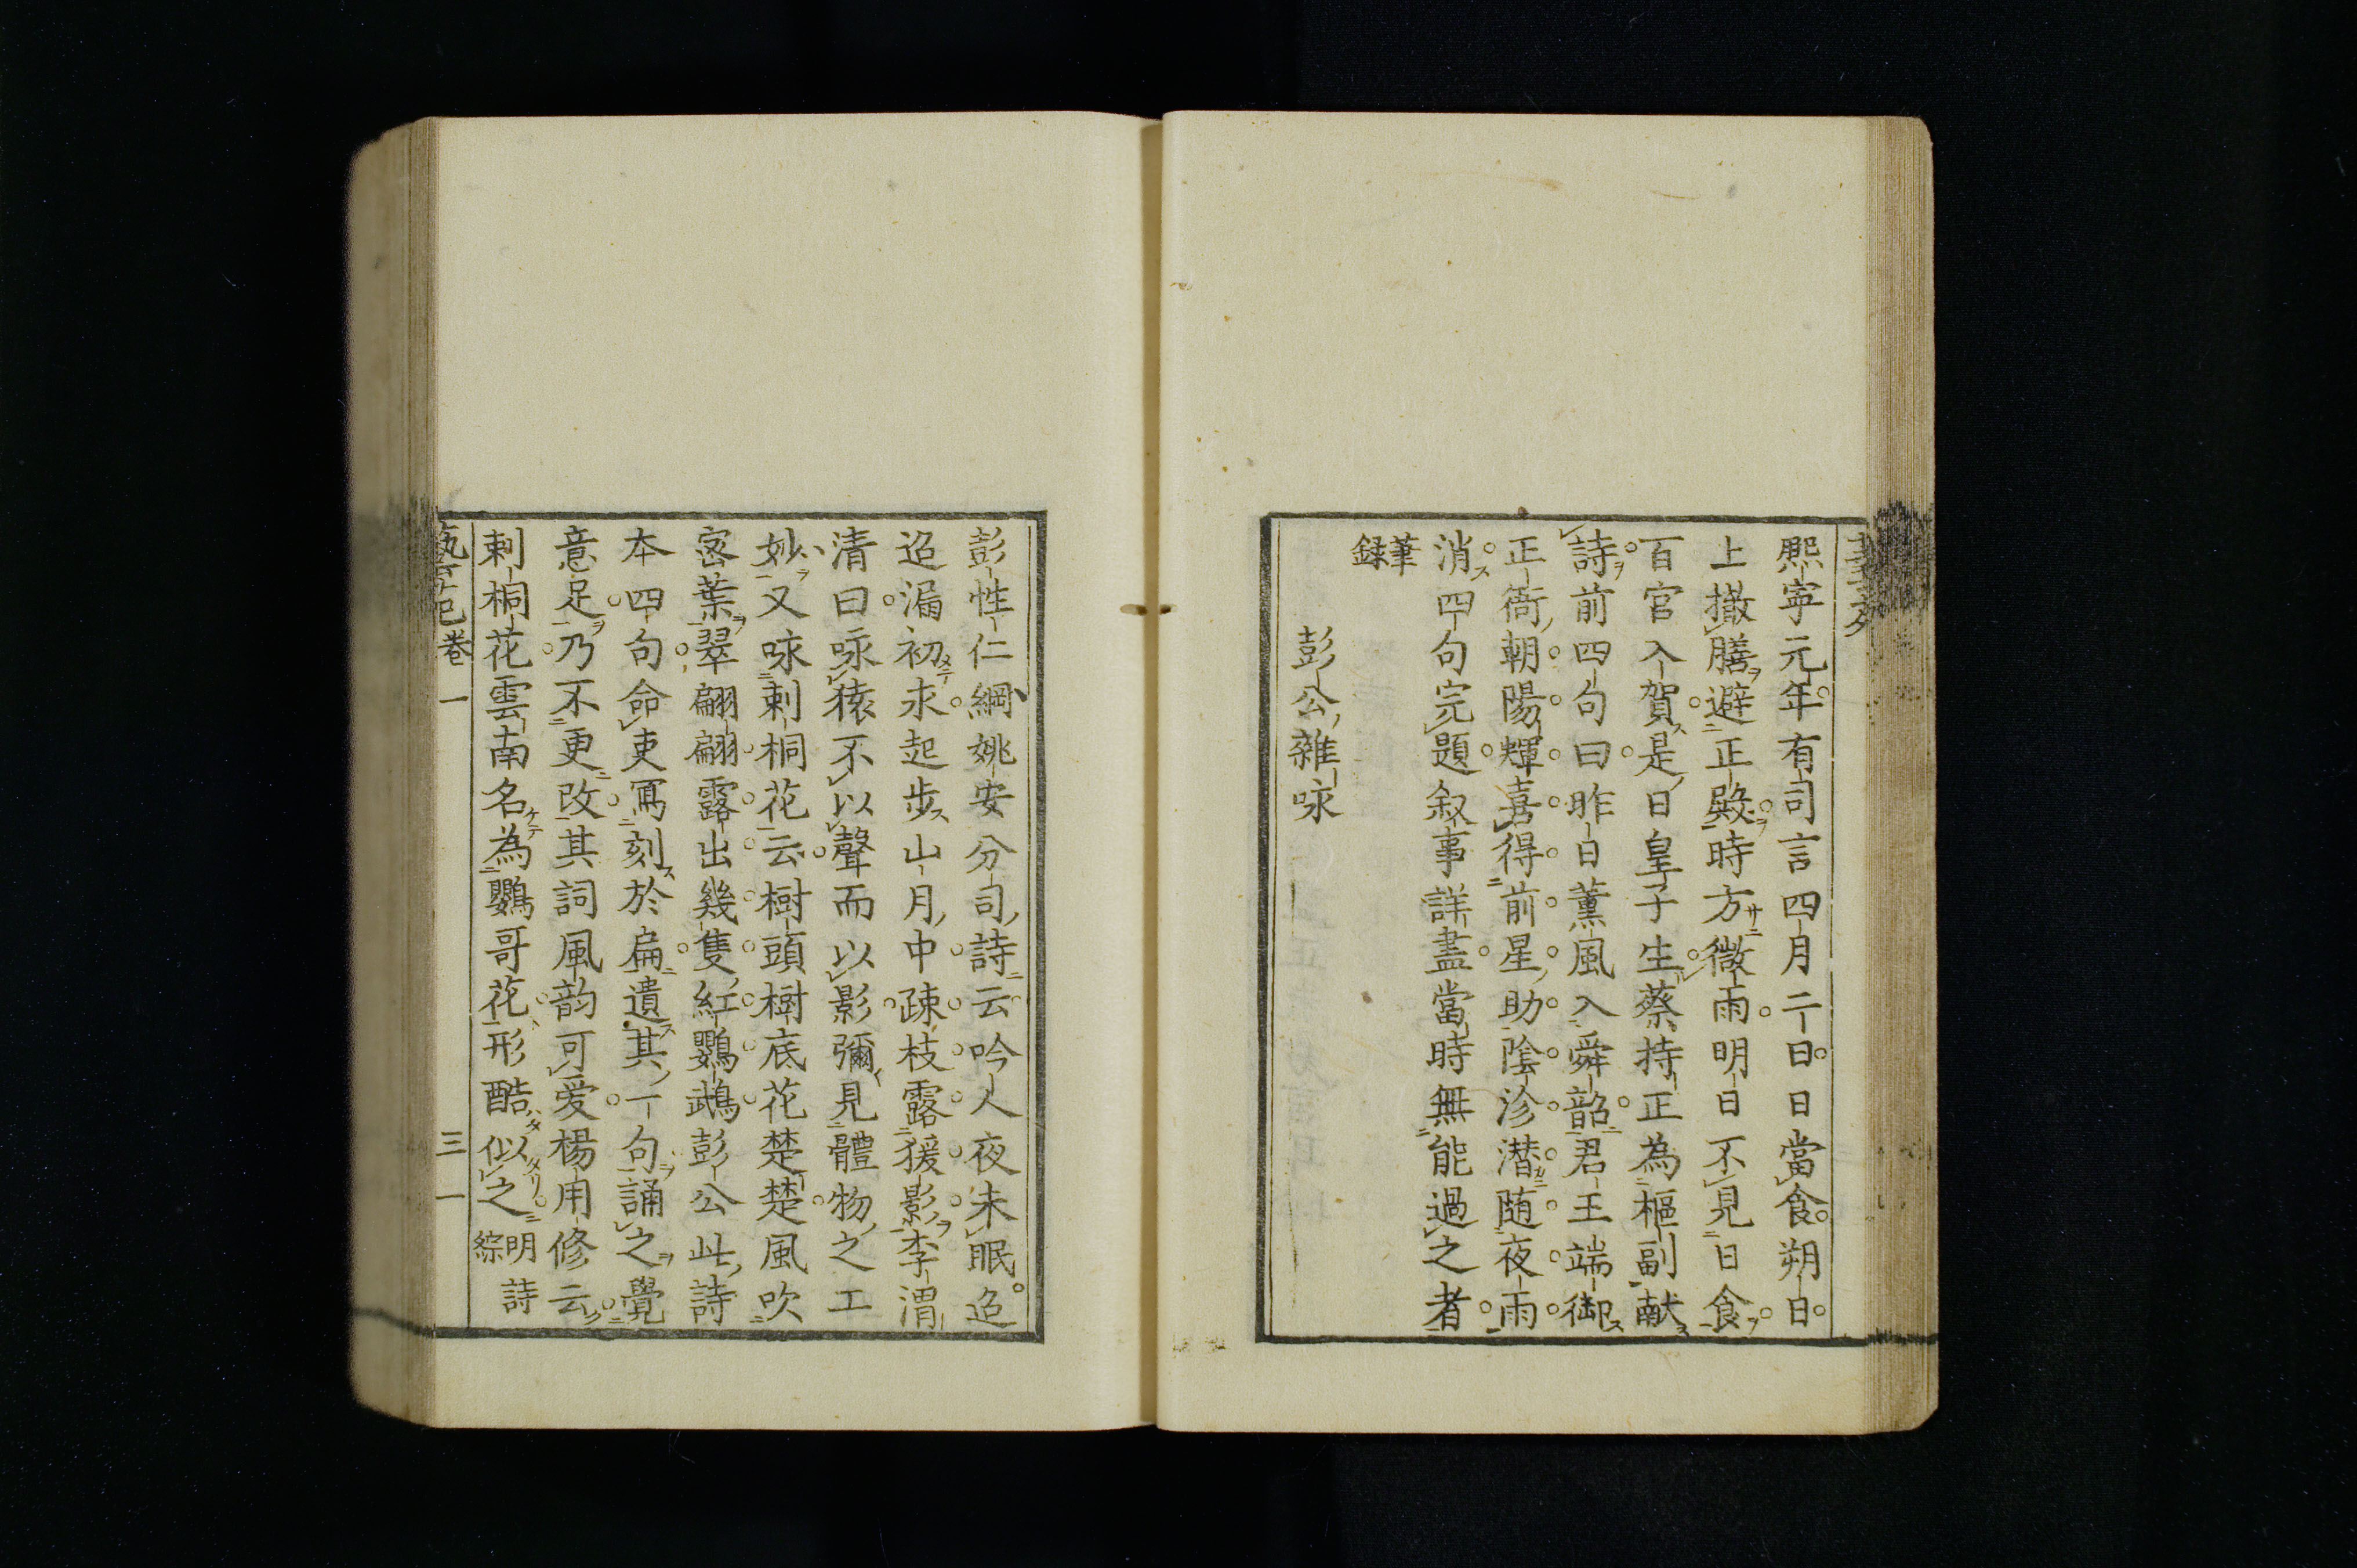 熈寧元年有司言四月二日日當食朔日
上撤膳避正殿時方微雨明日不見日食
百官入賀是日皇子生蔡持正為樞副献
詩前四句曰昨日薫風入舜韶君王端御
正衙朝陽輝喜得前星助陰沴潜随夜雨
消四句完題叙事詳盡當時無能過之者
筆
録
彭公雜咏
彭性仁綱姚安分司詩云吟人夜未眠迨
迨漏初求起步山月中疎枝露猨影李渭
清曰咏猿不以聲而以影彌見體物之工
妙又咏刺桐花云樹頭樹底花楚楚風吹
密葉翠翩翩露出幾隻紅鸚鵡彭公此詩
本四句命吏寫刻於扁遺其一句誦之覺
意足乃不更改其詞風韵可爱楊用修云
刺桐花雲南名為鸚哥花形酷似之明詩
綜
卷一
三一